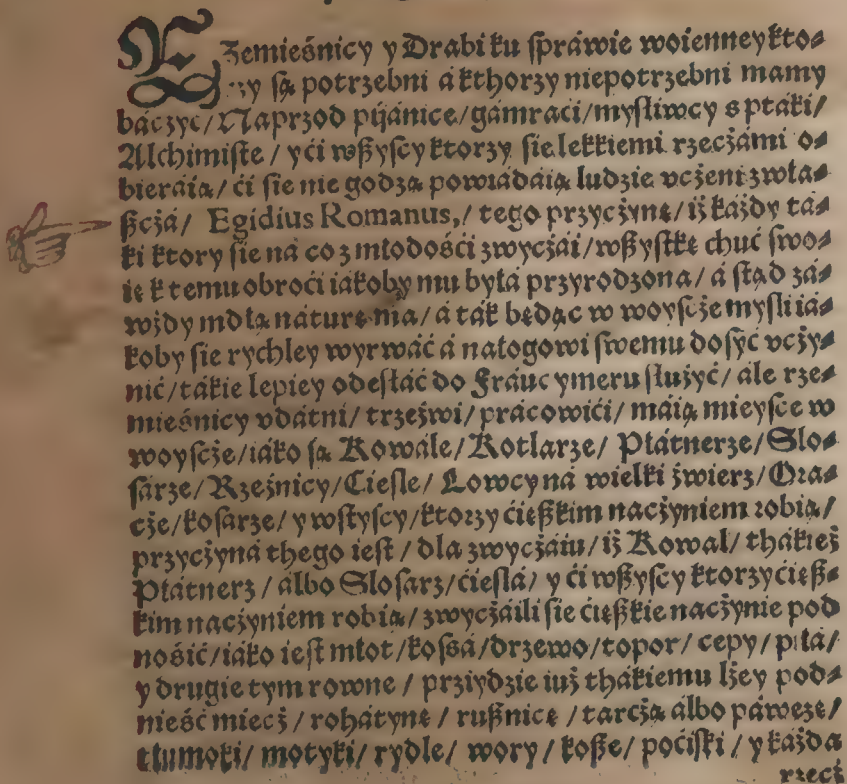 RZemieśnicy y Drabi ku ſpráwie woienney kto⸗
rzy ſą potrzebni á kthorzy niepotrzebni mamy
báczyć/ Naprzod pijánice/ gámraci/ myſliwcy s ptaki/
Alchimiſte/ y ći wßyſcy ktorzy ſie lekkiemi rzecżámi o⸗
bieráią/ ći ſie nie godzą powiádáią ludzie vcżeni zwła⸗
ßcżá/ Egidius Romanus,/ tego przycżynę/ iż káżdy tá⸗
ki ktory ſie ná co z młodośći zwycżái/ wßyſtkę chuć ſwo⸗
ię k temu obroći iákoby mu byłá przyrodzona/ á ſtąd zá⸗
wżdy mdłą náturę ma/ á ták będąc w woyſcże myſli iá⸗
koby ſie rychley wyrwáć á nałogowi ſwemu doſyć vcży⸗
nić/ tákie lepiey odeſłáć do Fráucymeru ſłużyć/ ále rze⸗
mieśnicy vdátni/ trzeźwi/ prácowići/ máią mieyſce w
woyſcże/ iáko ſą Kowále/ Kotlarze/ Płátnerze/ Slo⸗
ſárze/ Rzeźnicy/ Cieſle/ Łowcy ná wielki źwierz/ Ora⸗
cże/ koſarze/ y wſtyſcy/ ktorzy ćięßkim nacżyniem robią/
przycżyná thego ieſt/ dla zwycżáiu/ iż Kowal/ thákież
Płátnerz/ álbo Sloſarz/ ćieſlá/ y ći wßyſcy ktorzy ćięß⸗
kim nacżyniem robią/ zwycżáili ſie ćięßkie nacżynie pod
nośić/ iáko ieſt młot/ koſsá/ drzewo/ topor/ cepy/ piłá/
y drugie tym rowne/ prziydzie iuż thákiemu lżey pod⸗
nieść miecż/ rohátynę/ rußnicę/ tarcżą álbo páwęzę/
tłumoki/ motyki/ rydle/ wory/ koße/ poćiſki/ y káżda
rzecż